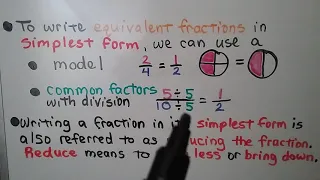 • To write equivalent fractions in
simplest form, we can use a
• model 2/4 = 1/2
• common factors 5÷5/10÷5 = 1/2
with division
• Writing a fraction in its simplest form is
also referred to as ucing the fraction.
Reduce means to less or bring down.